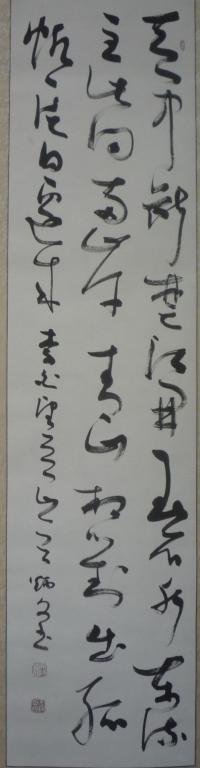 天門中斷楚江開碧水東流
至此回兩岸青山相對出孤
帆一片日邊來 李白望天門山